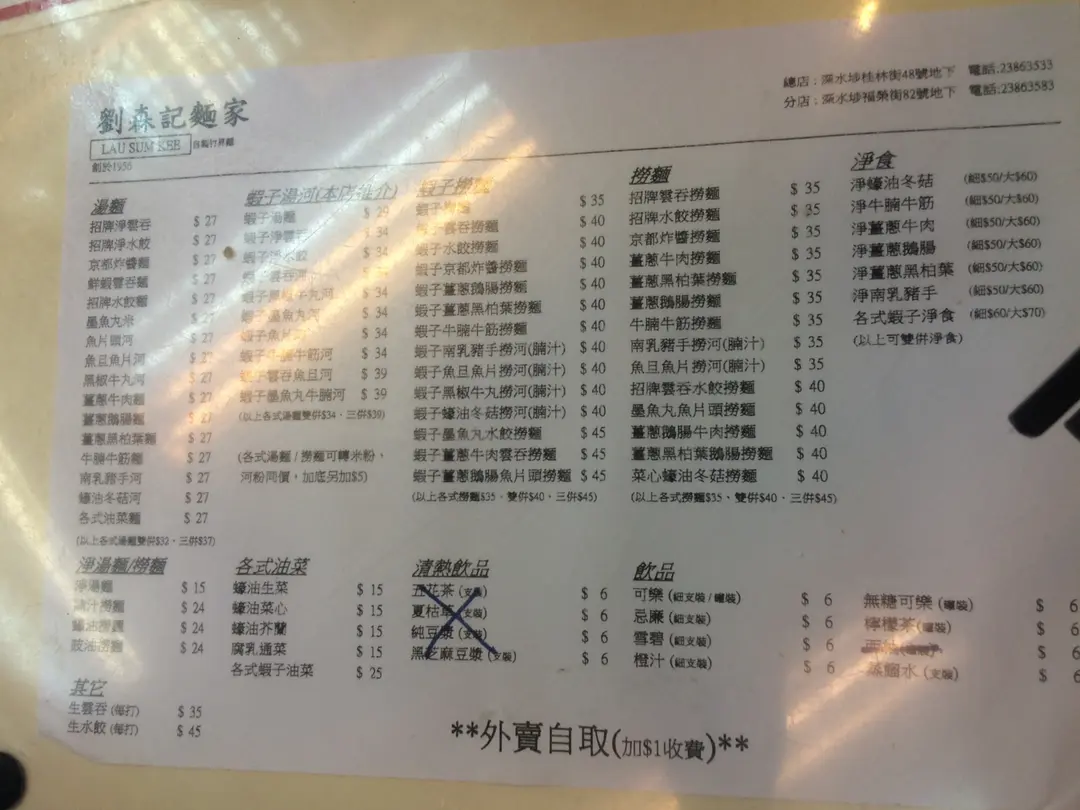 劉森記麵家
LAU SUM KEE 自製竹昇麵
創於1956
總店：深水埗桂林街48號地下 電話:23863533
分店：深水埗福榮街82號地下 電話:23863583
湯麵
招牌淨雲吞 $ 27
招牌淨水餃 $ 27
京都炸醬麵 $ 27
鮮蝦雲吞麵 $ 27
招牌水餃麵 $ 27
墨魚丸米 $ 27
魚片頭河 $ 27
魚旦魚片河 $ 27
黑椒牛丸河 $ 27
薑蔥牛肉麵 $ 27
薑蔥鵝腸麵 $ 27
薑蔥黑柏葉麵 $ 27
牛腩牛筋麵 $ 27
南乳豬手河 $ 27
蠔油冬菇河 $ 27
各式油菜麵 $ 27
(以上各式湯麵雙併$32、三併$37)
蝦子湯河(本店推介)
蝦子湯麵 $ 29
蝦子淨雲吞 $ 34
蝦子淨水餃 $ 34
蝦子雲吞河
蝦子黑椒牛丸河 $ 34
蝦子墨魚丸河 $ 34
蝦子魚片河 $ 34
蝦子牛腩牛筋河 $ 34
蝦子雲吞魚旦河 $ 39
蝦子墨魚丸牛腩河 $ 39
(以上各式湯麵雙併$34、三併$39)
(各式湯麵 / 撈麵可轉米粉，
河粉同價，加底另加$5)
蝦子撈麵
蝦子撈麵 $ 35
蝦子雲吞撈麵 $ 40
蝦子水餃撈麵 $ 40
蝦子京都炸醬撈麵 $ 40
蝦子薑蔥黑柏葉撈麵 $ 40
蝦子薑蔥鵝腸撈麵 $ 40
蝦子牛腩牛筋撈麵 $ 40
蝦子南乳豬手撈河(腩汁) $ 40
蝦子魚旦魚片撈河(腩汁) $ 40
蝦子黑椒牛丸撈河(腩汁) $ 40
蝦子蠔油冬菇撈河(腩汁) $ 40
蝦子墨魚丸水餃撈麵 $ 45
蝦子薑蔥牛肉雲吞撈麵 $ 45
蝦子薑蔥鵝腸魚片頭撈麵 $ 45
(以上各式撈麵$35、雙併$40、三併$45)
撈麵
招牌雲吞撈麵 $ 35
招牌水餃撈麵 $ 35
京都炸醬撈麵 $ 35
薑蔥牛肉撈麵 $ 35
薑蔥黑柏葉撈麵 $ 35
薑蔥鵝腸撈麵 $ 35
牛腩牛筋撈麵 $ 35
南乳豬手撈河(腩汁) $ 35
魚旦魚片撈河(腩汁) $ 35
招牌雲吞水餃撈麵 $ 40
墨魚丸魚片頭撈麵 $ 40
薑蔥鵝腸牛肉撈麵 $ 40
薑蔥黑柏葉鵝腸撈麵 $ 40
菜心蠔油冬菇撈麵 $ 40
(以上各式撈麵$35、雙併$40、三併$45)
淨食
淨蠔油冬菇 (細$50/大$60)
淨牛腩牛筋 (細$50/大$60)
淨薑蔥牛肉 (細$50/大$60)
淨薑蔥鵝腸 (細$50/大$60)
淨薑蔥黑柏葉 (細$50/大$60)
淨南乳豬手 (細$50/大$60)
各式蝦子淨食 (細$60/大$70)
(以上可雙併淨食)
淨湯麵/撈麵
淨湯麵 $ 15
腩汁撈麵 $ 24
蠔油撈麵 $ 24
豉油撈麵 $ 24
各式油菜
蠔油生菜 $ 15
蠔油菜心 $ 15
蠔油芥蘭 $ 15
腐乳通菜 $ 15
各式蝦子油菜 $ 25
清熱飲品
五花茶 (支裝) $ 6
夏枯草 (支裝) $ 6
純豆漿 (支裝) $ 6
黑芝麻豆漿 (支裝) $ 6
飲品
可樂 (細支裝 / 罐裝) $ 6
忌廉 (細支裝) $ 6
雪碧 (細支裝) $ 6
橙汁 (細支裝) $ 6
無糖可樂 (罐裝) $ 6
檸檬茶 (罐裝) $ 6
$ 6
蒸餾水 (支裝) $ 6
其它
生雲吞 (每打) $ 35
生水餃 (每打) $ 45
**外賣自取(加$1收費)**